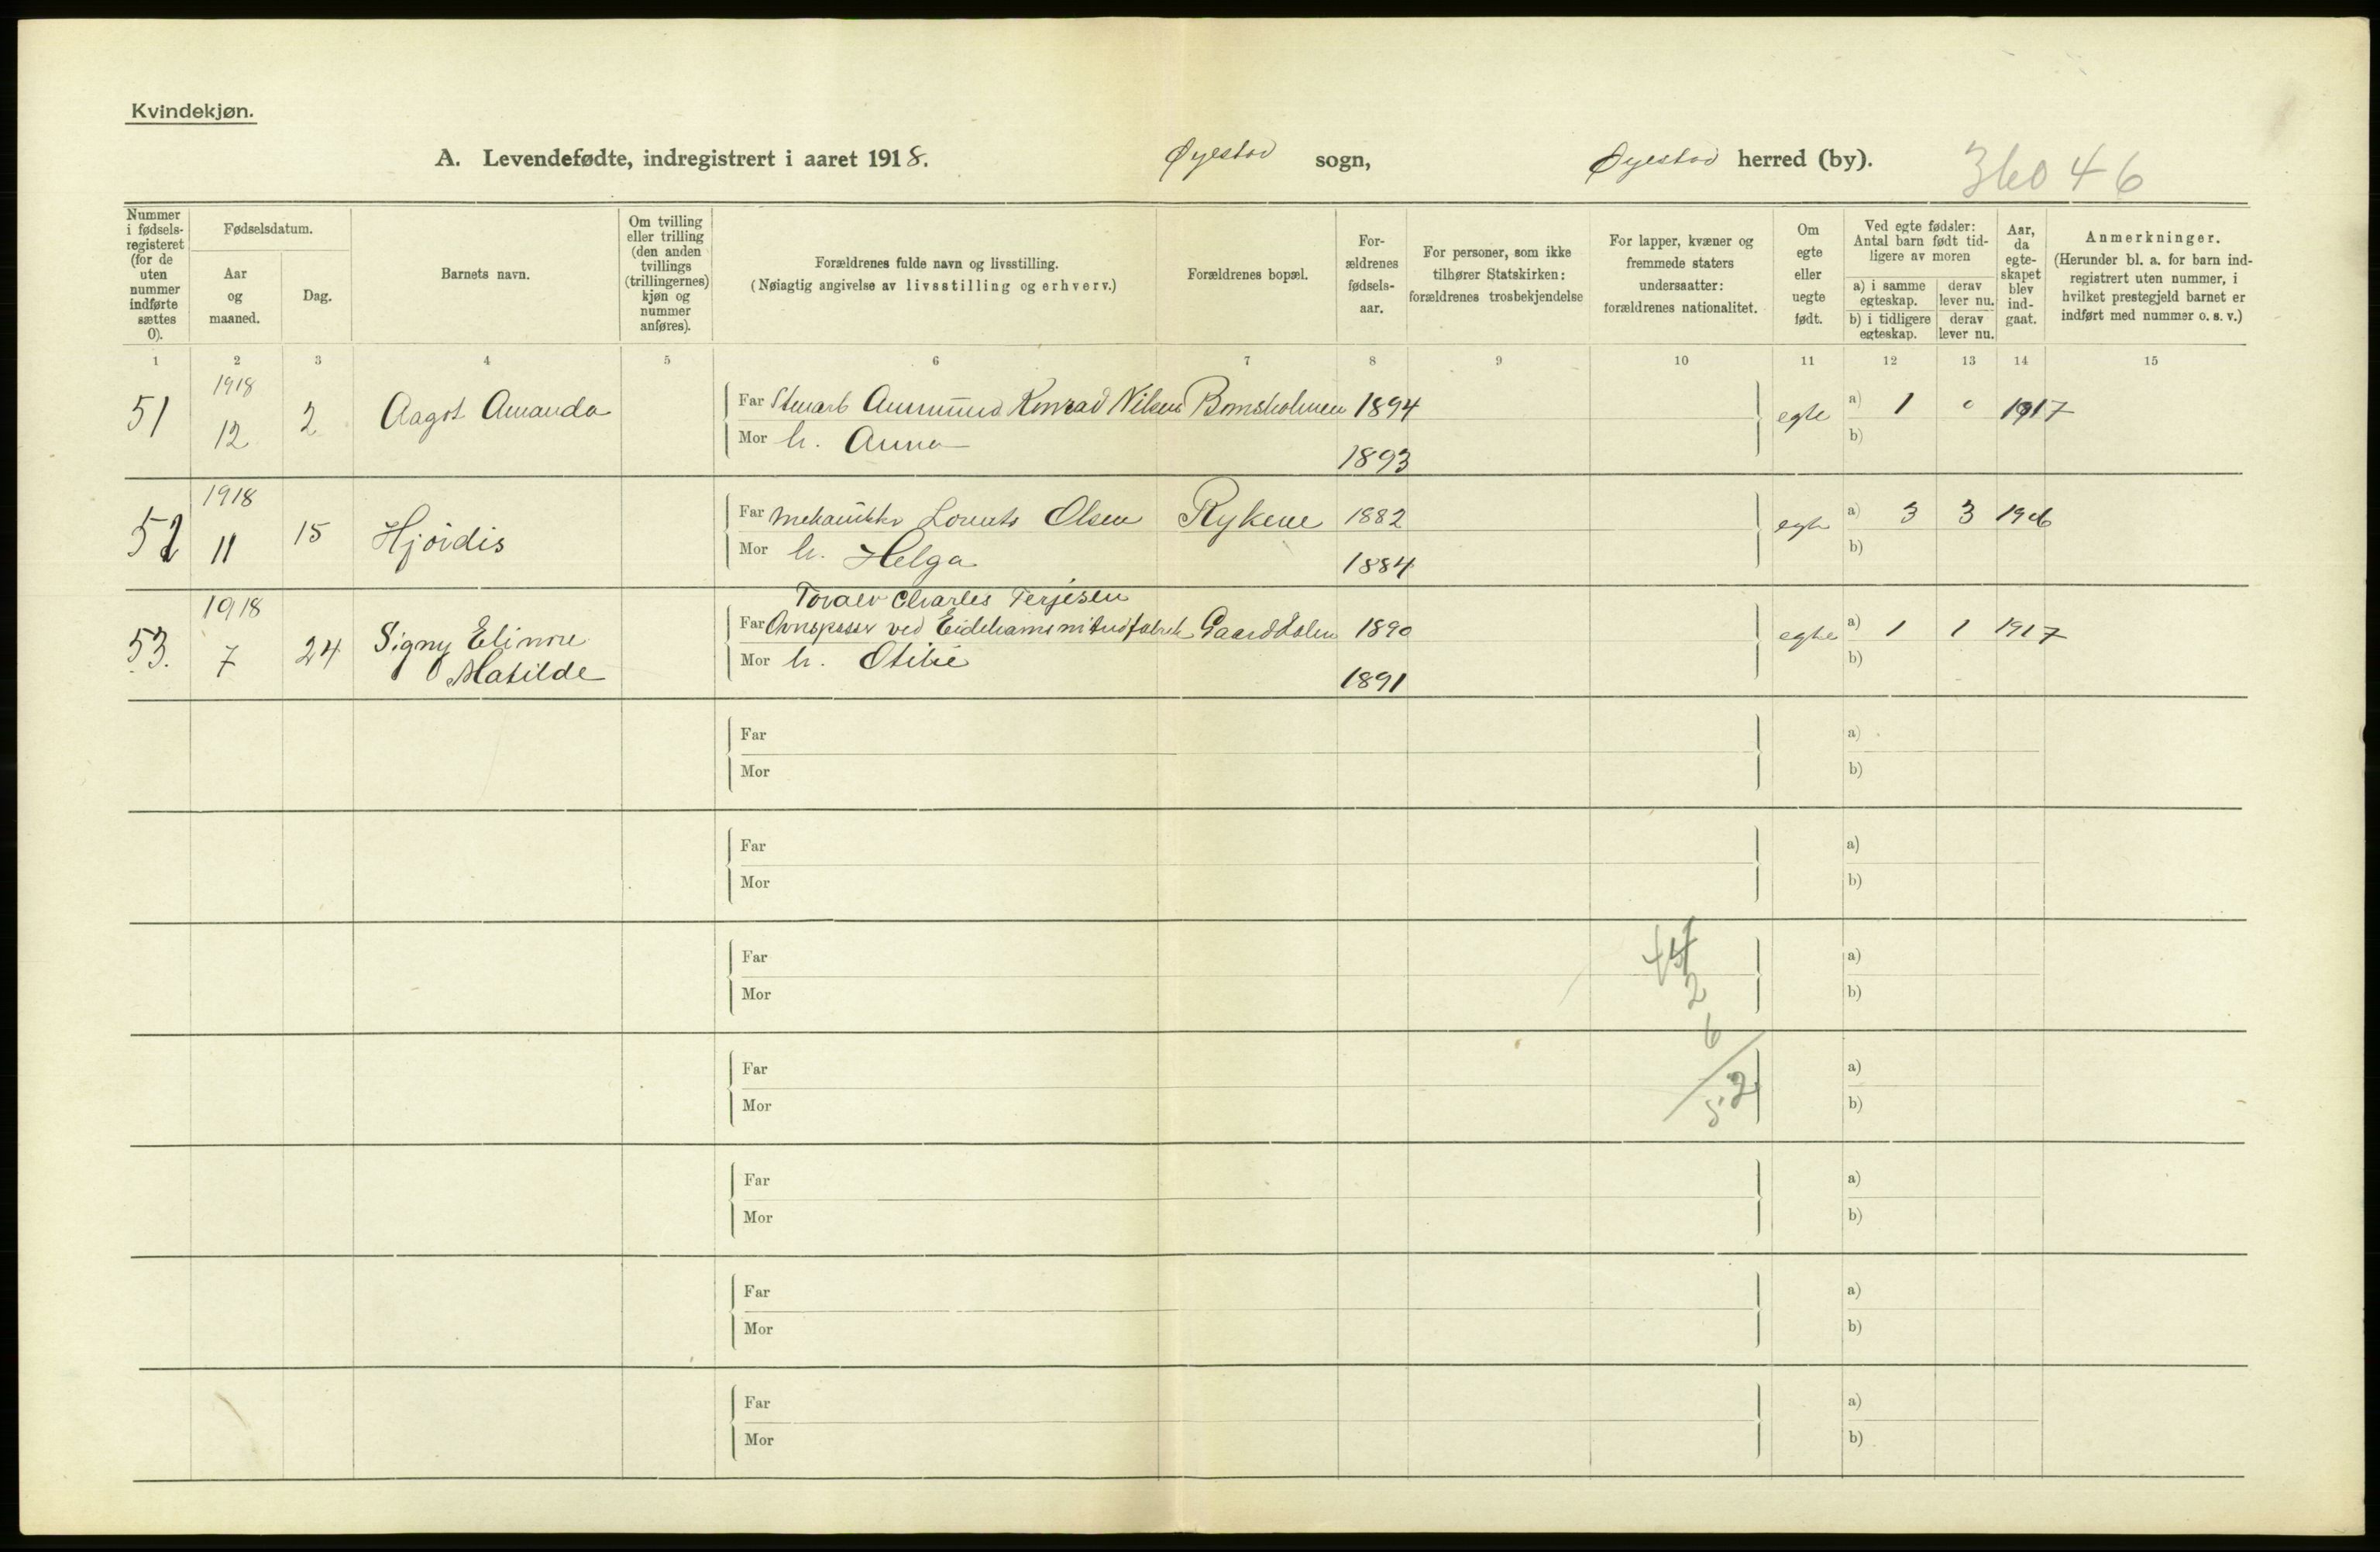 Kvindekjøn.
A. Levendefødte, indregistrert i aaret 1918. Øyestad sogn, Øyestad herred (by). 36046
Nummer i fødsels- registeret (for de uten nummer indførte sættes 0).
Fødselsdatum.
Aar og maaned.
Dag.
Barnets navn.
Om tvilling eller trilling (den anden tvillings (trillingernes) kjøn og nummer anføres).
Forældrenes fulde navn og livsstilling.
(Nøiagtig angivelse av livsstilling og erhverv.)
Forældrenes bopæl.
For- ældrenes fødsels- aar.
For personer, som ikke tilhører Statskirken: forældrenes trosbekjendelse
For lapper, kvæner og fremmede staters undersaatter: forældrenes nationalitet.
Om egte eller uegte født.
Ved egte fødsler: Antal barn født tid- ligere av moren
a) i samme egteskap. derav lever nu.
b) i tidligere egteskap. derav lever nu.
Aar, da egte- skapet blev ind- gaat.
Anmerkninger.
(Herunder bl. a. for barn ind- registrert uten nummer, i hvilket prestegjeld barnet er indført med nummer o. s. v.)
1 2 3 4 5 6 7 8 9 10 11 12 13 14 15
51 1918 12 2 Aagot Amanda Far Stuert Konrad Nilsen Bomsholmen 1894 egte a) 1 0 1917
Mor h. Anna 1893 b)
52 1918 11 15 Hjördis Far Mekanikker Lorents Olsen Rykene 1882 egte a) 3 3 1906
Mor h. Helga 1884 b)
Toralv Charles Terjesen
53. 1918 7 24 Signy Elinore Far Ovnspasser ved Eidehavns nitridfabrik 1890 egte a) 1 1 1917
Matilde Mor h. Otilie 1891 b)
Far a)
Mor b)
Far a)
Mor b)
Far a)
Mor 2 b)
6
Far a)
Mor 52 b)
Far a)
Mor b)
Far a)
Mor b)
Far a)
Mor b)